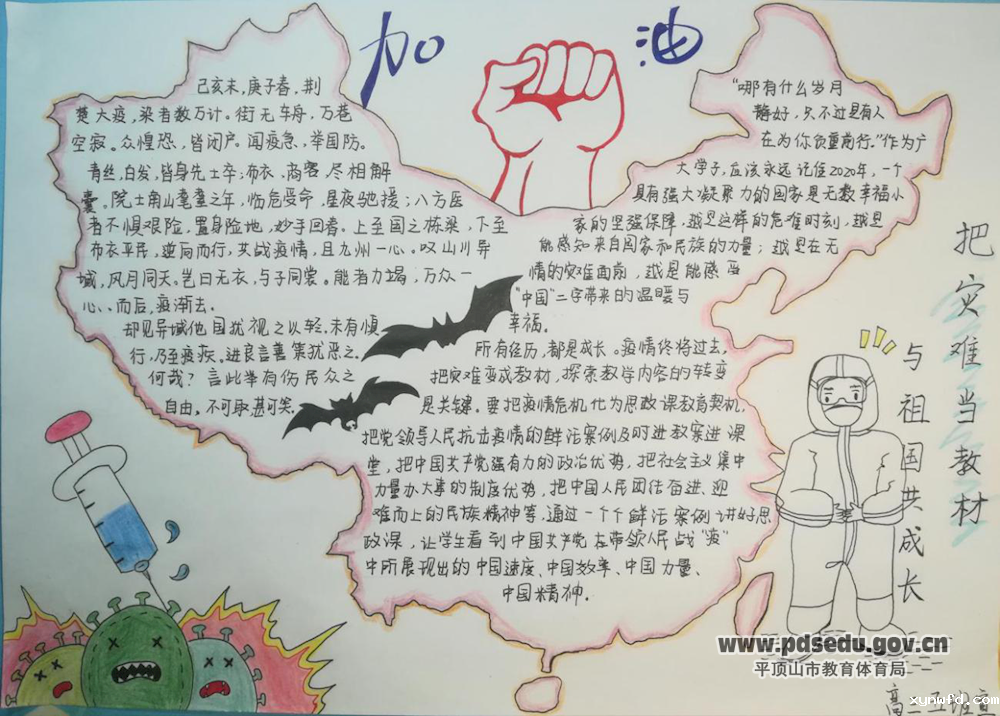 加油
己亥末,庚子春,荆
楚大疫,染者数万计。街无车舟,万巷
空寂。众惶恐,皆闭户。闻疫急,举国防。
青丝,白发,皆身先士卒;布衣、商客,尽相解
囊。院士南山耄耋之年,临危受命,星夜驰援;八方医
者不惧艰险,置身险地,妙手回春。上至国之栋梁,下至
布衣平民,逆向而行,共战疫情,且九州一心。叹山川异
域,风月同天。岂曰无衣,与子同裳。能者力竭,万众一
心、而后,疫渐去。
却见异域他国犹视之以轻,未有慎
行,乃至疫疾。进良言善策犹恶之。
何哉?言此举有伤民众之
自由。不可取甚可笑。
“哪有什么岁月
静好,只不过是有人
在为你负重前行。”作为广
大学子,应该永远记住2020年,一个
具有强大凝聚力的国家是无数幸福小
家的坚强保障,越是这样的危难时刻,越是
能感知来自国家和民族的力量;越是在无
情的灾难面前,越是能感受
“中国”二字带来的温暖与
幸福。
所有经历,都是成长。疫情终将过去,
把灾难变成教材,探索教学内容的转变
是关键。要把疫情危机化为思政课教育契机,
把党领导人民抗击疫情的鲜活案例及时进教案进课
堂,把中国共产党强有力的政治优势,把社会主义集中
力量办大事的制度优势,把中国人民团结奋进、迎
难而上的民族精神等,通过一个个鲜活案例讲好思
政课,让学生看到中国共产党在带领人民战“疫”
中所展现出的中国速度、中国效率、中国力量、
中国精神。
把灾难当教材
与祖国共成长
www.pdsedu.gov.cn
平顶山市教育体育局
xynwfd.com